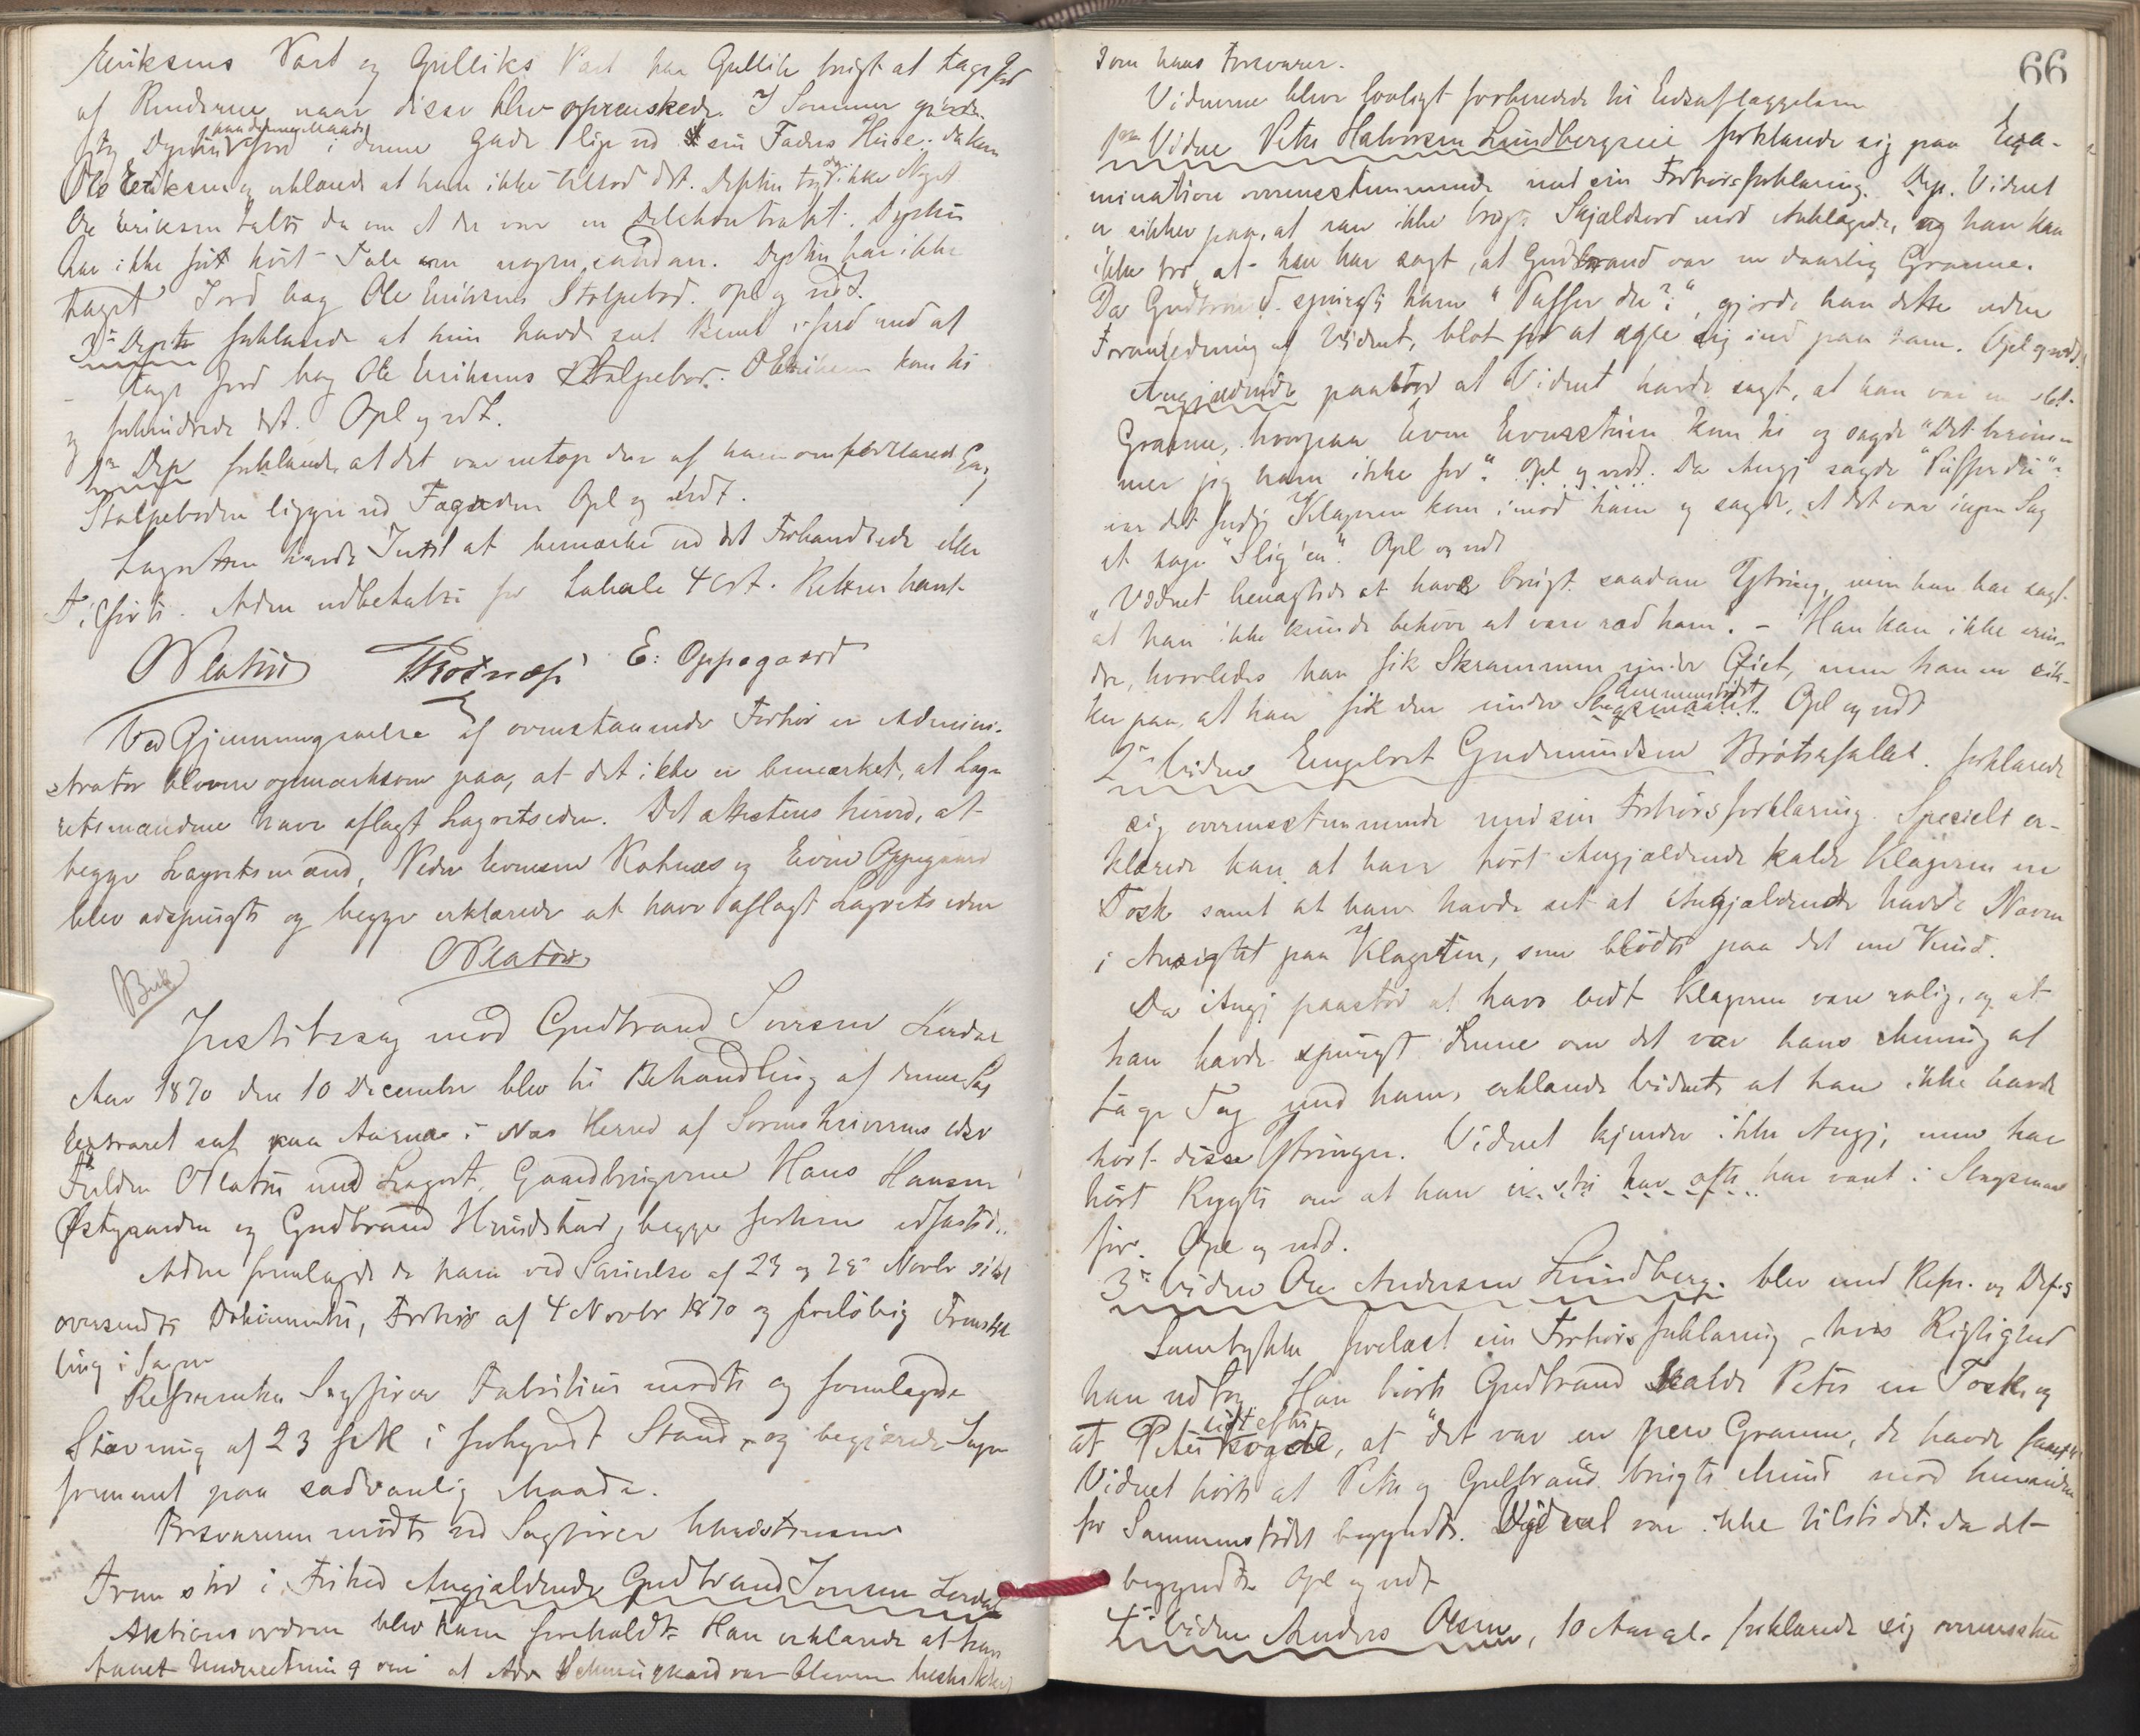 Eriksens Vart og Gulliks Vart har Gullik brugt at tage Jord
af Renderne naar disse blev oprenskede. I Sommer gjorde
tog Deptus paa denne Maade Jord i denne Gade lige ved sin Faders Huse; da kom
Ole Eriksen og erklærede at han ikke tilstod det. Deptus tog da ikke Noget
Ole Eriksen talte da om at der var en Delekontrakt. Deptus
har ikke før hørt Tale om nogen saadan. Deptus har ikke
taget Jord bag Ole Eriksens Stolpebod. opl og vedt.
3die Dept forklarede at hun havde set Bent i færd med at
tage Jord bag Ole Eriksens Stolpebod. O Eriksen kom til
og forhindrede det. Opl og vedt.
1ste Dep forklarede at det var netop den af ham omforklarede Gang
Stolpeboden ligger ved Fagaden Opl og vedt.
Lagretten havde Intet at bemærke ved det Forhandlede eller
Tilførte. Adm udbetalte for Lokale 4 Ort. Retten hævet
OPlatou Thodnæs E: Oppegaard
Ved Gjennemgaaelse af ovenstaaende Forhør er Admini-
strator bleven opmærksom paa, at det ikke er bemærket, at Lag-
retsmændene have aflagt Lagretseden. Det attesteres herved, at
begge Lagretsmænd, Peder Evensen Rotnæs og Even Oppegaard
blev adspurgte og begge erklærede at have aflagt Lagretseden
OPlatou
Justitssag mod Gudbrand Iversen Lerdal
Aar 1870 den 10 December blev til Behandling af denne Sag
Extraret sat paa Aarnæs i Næs Herred af Sorenskriverens edsv
Fuldm OPlatou med Lagret, Gaardbrugerne Hans Hansen
Østgaarden og Gudbrand Hundstad, begge forhen edfæstede.
Adm fremlagde de ham ved Skrivelse af 23 og 25 Novbr sidst
oversendte Dokumenter, Forhør af 4 Novbr 1870 og foreløbig Fremstil
ling i Sagen
Referenten Sagfører Fabritius mødte og fremlagde
Stævning af 23 f M i forkyndt Stand, og begjærede Sagen
fremmet paa sædvanlig Maade.
Forsvareren mødte ved Sagfører Christensen
Frem stod i Frihed Angjældende Gudbrand Iversen Lerdal
Aktionsordren blev ham foreholdt. Han erklærede at have
faaet Underretning om at Adv Schmiegaard var bleven beskikket
66
som hans Forsvarer.
Vidnerne bleve lovligt forberedede til Edsaflæggelsen
1ste Vidne Peter Halvorsen Lundbergseie forklarede sig paa Exa-
mination overensstemmende med sin Forhørsforklaring. Dep. Vidnet
er sikker paa, at han ikke brugte Skjældsord mod Anklagede, og han kan
ikke tro at han har sagt, at Gudbrand var en daarlig Granne.
Da Gudbrand spurgte ham "Puffer du?", gjorde han dette uden
Foranledning af Vidnet, blot for at egle sig ind paa ham. Opl og vedt.
Angjældende paastod at Vidnet havde sagt, at han var en slet
Granne, hvorpaa Even Evensstuen kom til og sagde "Det berøm
mer jeg ham ikke for". Opl og vedt. Da Angj sagde "Puffer du"?
var det fordi Klageren kom imod ham og sagde, at det var ingen Sag
at tage "Slig'en". Opl og vedt
Vidnet benægtede at have brugt saadan Yttring, men han har sagt
at han ikke kunde behøve at være ræd ham. – Han kan ikke erin-
dre, hvorledes han fik Skrammen under Øiet, men han er sik-
ker paa, at han fik den under Slagsmaalet Sammenstødet. Opl og vedt
2det Vidne Engebret Gudmundsen Brøtnfaldet. forklarede
sig overensstemmende med sin Forhørsforklaring. Specielt er-
klærede han at have hørt Angjældende kalde Klageren en
Tosk samt at han havde set at Angjældende havde Næven
i Ansigtet paa Klageren, som blødte paa det ene Kind.
Da Angj paastod at have bedt Klageren være rolig, og at
han havde spurgt denne om det var hans Mening at
tage Tag med ham, erklærede Vidnet, at han ikke havde
hørt disse Yttringer. Vidnet kjender ikke Angj, men har
hørt Rygte om at han har ofte har været i Slagsmaal
før. Opl og vedt.
3die Vidne Ole Andersen Lundberg. blev med Refr. og Defs
Samtykke forelæst sin Forhørsforklaring, hvis Rigtighed
han vedtog. Han hørte Gudbrand kalde Peter en Tosk og
at Peter lidt efter sagde, at "det var en pen Granne, de havde faaet"
Vidnet hørte at Peter og Gudbrand brugte Mund mod hinanden
før Sammenstødet begyndte. Vidnet var ikke tilstede da det
begyndte Opl og vedt
4de Vidne Anders Olsen, 10 Aar gl. forklarede sig overensstem